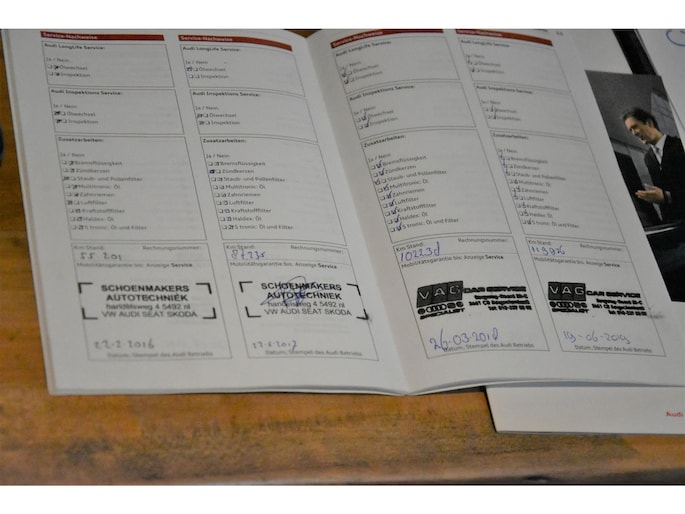 Service-Nachweise
Audi LongLife Service:
Ja / Nein
Ölwechsel
Inspektion
Audi Inspektions Service:
Ja / Nein
Ölwechsel
Inspektion
Zusatzarbeiten:
Ja / Nein
Bremsflüssigkeit
Zündkerzen
Staub- und Pollenfilter
Multitronic: Öl
Zahnriemen
Luftfilter
Kraftstofffilter
Haldex: Öl
S tronic: Öl und Filter
Km Stand: Rechnungsnummer:
55.201
Mobilitätsgarantie bis: Anzeige Service
SCHOENMAKERS
AUTOTECHNIEK
handelsweg 4 5492 nl
VW AUDI SEAT SKODA
22-2-2016
Datum, Stempel des Audi Betriebs
Service-Nachweise
Audi LongLife Service:
Ja / Nein
Ölwechsel
Inspektion
Audi Inspektions Service:
Ja / Nein
Ölwechsel
Inspektion
Zusatzarbeiten:
Ja / Nein
Bremsflüssigkeit
Zündkerzen
Staub- und Pollenfilter
Multitronic: Öl
Zahnriemen
Luftfilter
Kraftstofffilter
Haldex: Öl
S tronic: Öl und Filter
Km Stand: Rechnungsnummer:
Mobilitätsgarantie bis: Anzeige Service
SCHOENMAKERS
AUTOTECHNIEK
handelsweg 4 5492 nl
VW AUDI SEAT SKODA
Datum, Stempel des Audi Betriebs
Service-Nachweise
Audi LongLife Service:
Ja / Nein
Ölwechsel
Inspektion
Audi Inspektions Service:
Ja / Nein
Ölwechsel
Inspektion
Zusatzarbeiten:
Ja / Nein
Bremsflüssigkeit
Zündkerzen
Staub- und Pollenfilter
Multitronic: Öl
Zahnriemen
Luftfilter
Kraftstofffilter
Haldex: Öl
S tronic: Öl und Filter
Km Stand: Rechnungsnummer:
Mobilitätsgarantie bis: Anzeige Service
VAG CAR SERVICE
SPECIALIST
26-03-2018
Datum, Stempel des Audi Betriebs
Service-Nachweise
Audi LongLife Service:
Ja / Nein
Ölwechsel
Inspektion
Audi Inspektions Service:
Ja / Nein
Ölwechsel
Inspektion
Zusatzarbeiten:
Ja / Nein
Bremsflüssigkeit
Zündkerzen
Staub- und Pollenfilter
Multitronic: Öl
Zahnriemen
Luftfilter
Kraftstofffilter
Haldex: Öl
S tronic: Öl und Filter
Km Stand: Rechnungsnummer:
Mobilitätsgarantie bis: Anzeige Service
VAG CAR SERVICE
SPECIALIST
19-06-2019
Datum, Stempel des Audi Betriebs
Audi